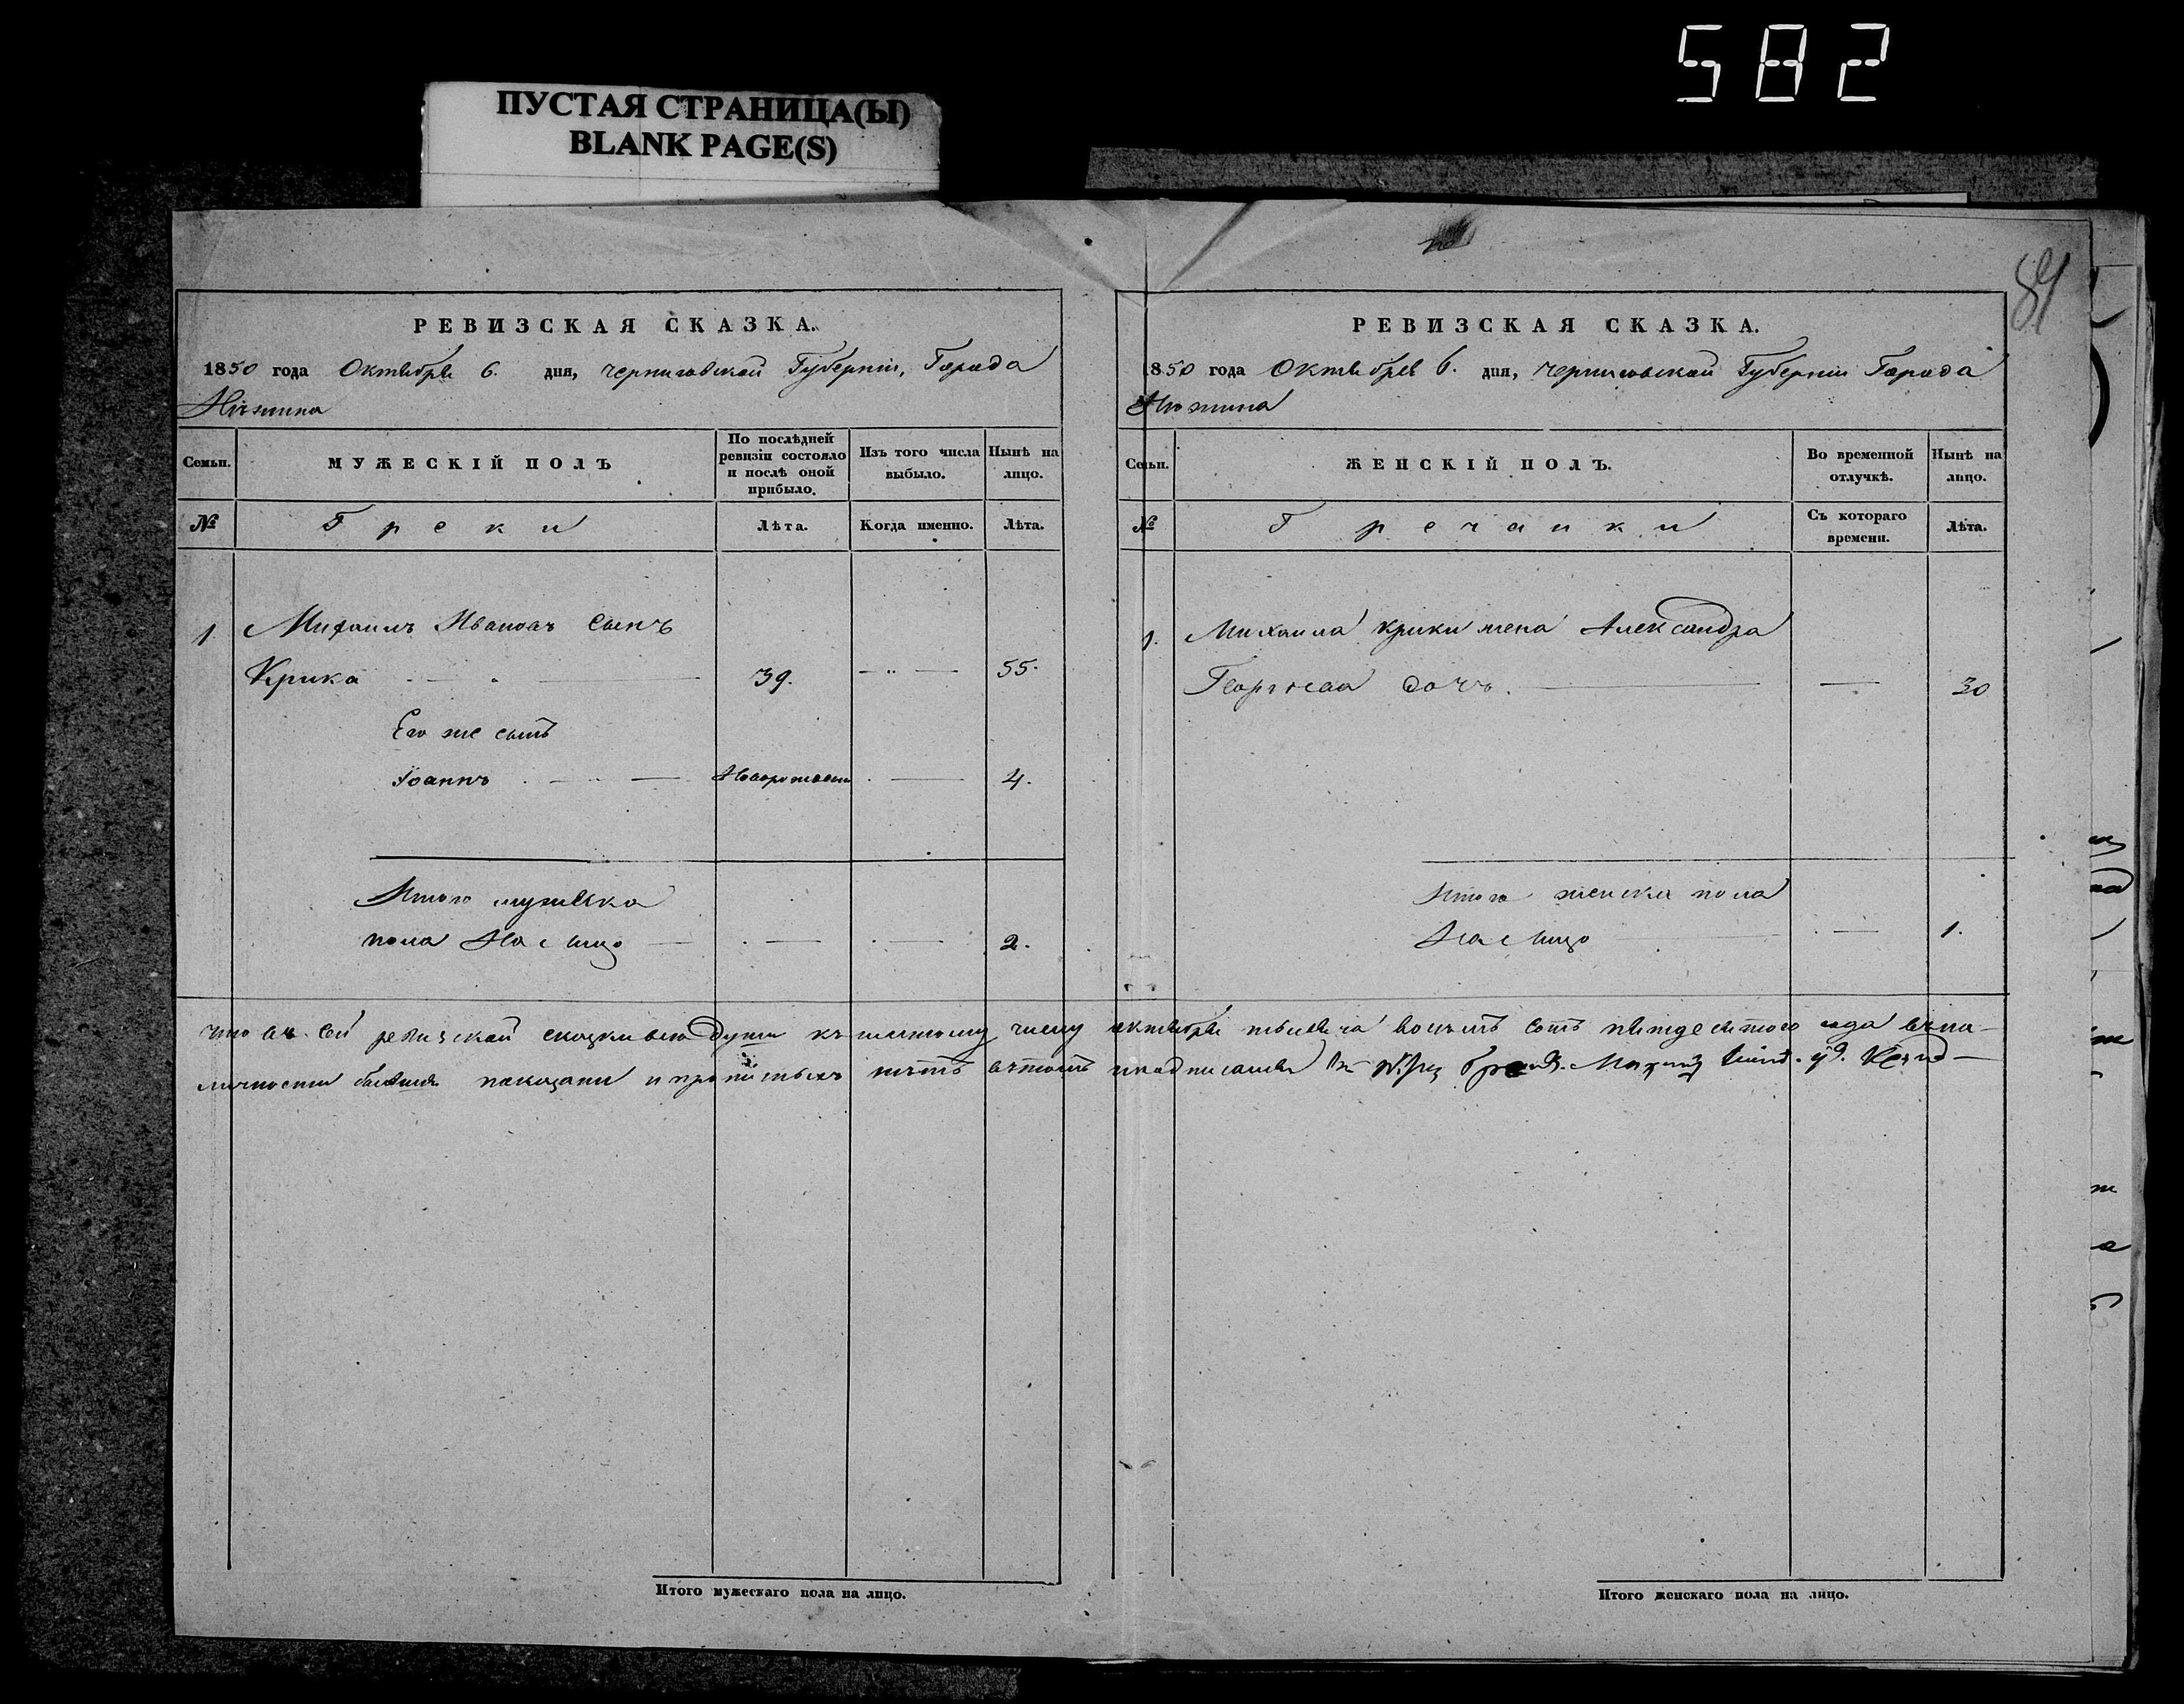 582
ПУСТАЯ СТРАНИЦА(Ы)
BLANK PAGE(S)
РЕВИЗСКАЯ СКАЗКА.
1850 года Октября 6. дня, Черниговской Губернии, Города
Нѣжина
Семьи.
МУЖЕСКІЙ ПОЛЪ
По послѣдней ревизіи состояло и послѣ оной прибыло.
Изъ того числа выбыло.
Нынѣ на лицо.
№
Греки
Лѣта.
Когда именно.
Лѣта.
1
Михаилъ Ивановъ сынъ
Крика 39. 55.
Его же сынъ
Іоаннъ 4.
Итого мужеска
пола На лицо 2.
РЕВИЗСКАЯ СКАЗКА.
1850 года Октября 6. дня, Черниговской Губернии Города
Нѣжина
Семьи.
ЖЕНСКІЙ ПОЛЪ.
Во временной отлучкѣ.
Нынѣ на лицо.
№
Гречанки
Съ котораго времени.
Лѣта.
1.
Михаила Крики жена Александра
Георгіева дочь. 30
Итого женска пола
На лицо 1.
что въ сей ревизской сказки все души къ шестому числу октября тысяча восемь сотъ пятдесятого года въ на-
личности бывшия показани и прописныхъ нѣтъ вѣтомъ подписался
Итого мужескаго пола на лицо.
Итого женскаго пола на лицо.